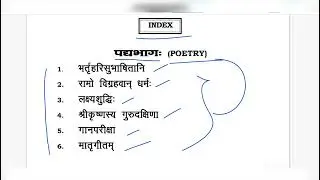 INDEX
पद्यभागः (POETRY)
1. भर्तृहरिसुभाषितानि
2. रामो विग्रहवान् धर्मः
3. लक्ष्यशुद्धिः
4. श्रीकृष्णस्य गुरुदक्षिणा
5. गानपरीक्षा
6. मातृगीतम्